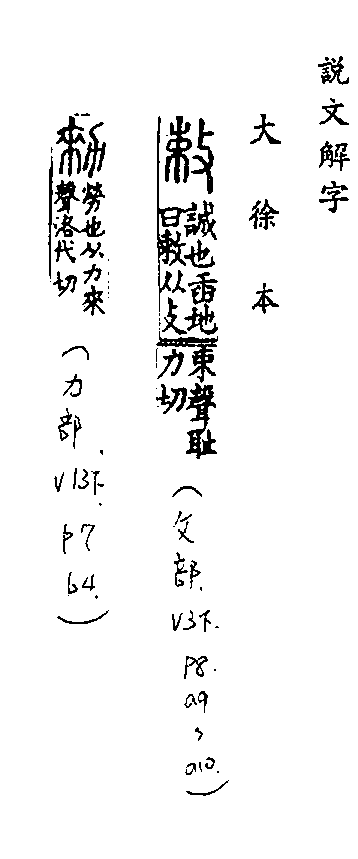 説文解字
大徐本
敕 誡也臿地
曰敕从攴
束聲恥
力切
(攵部. V3下. P8. a9、a10.)
勑 勞也从力來
聲洛代切
(力部. V13下. P7 b4.)